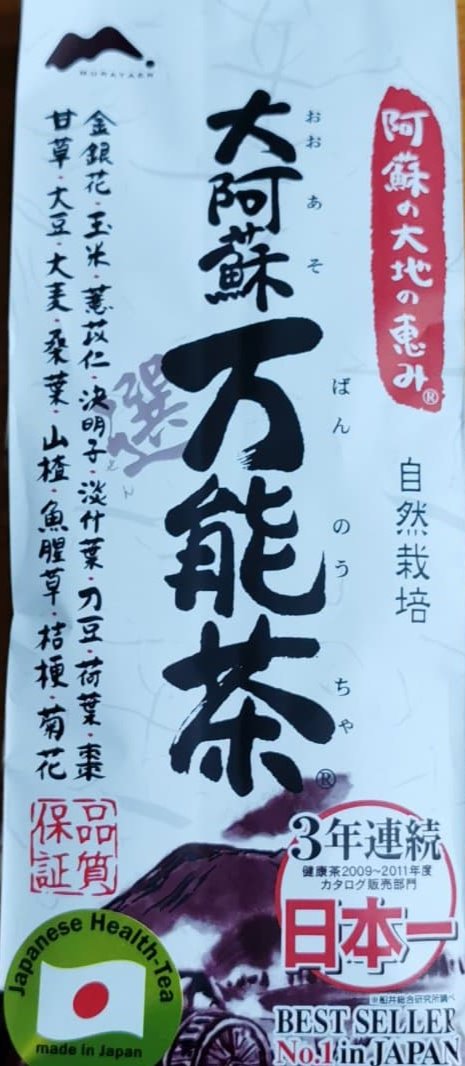 MURATAEN
阿蘇の大地の恵み®
自然栽培
大阿蘇
おお あ そ
万能茶®
ばん のう ちゃ
選
金銀花・玉米・薏苡仁・決明子・淡竹葉・刀豆・荷葉・棗
甘草・大豆・大麦・桑葉・山楂・魚腥草・桔梗・菊花
品質
保証
3年連続
健康茶2009~2011年度
カタログ販売部門
日本一
※船井総合研究所調べ
BEST SELLER
No.1 in JAPAN
Japanese Health-Tea
made in Japan